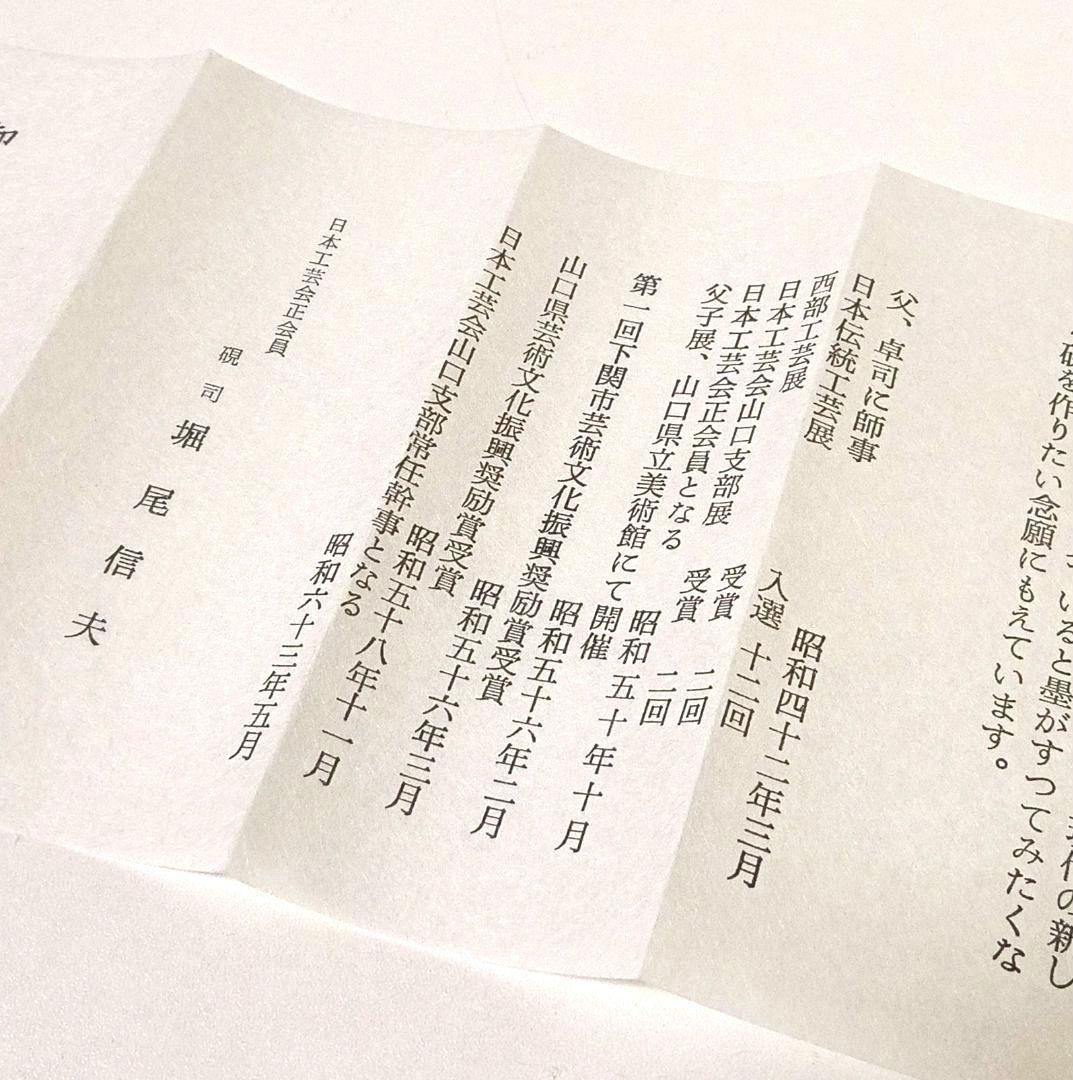 の新し
いると墨がすつてみたくな
硯を作りたい念願にもえています。
父、卓司に師事 昭和四十二年三月
日本伝統工芸展 入選 十二回
西部工芸展 受賞 二回
日本工芸会山口支部展 受賞 二回
日本工芸会正会員となる 昭和五十年十月
父子展、山口県立美術館にて開催 昭和五十六年二月
第一回下関市芸術文化振興奨励賞受賞 昭和五十六年三月
山口県芸術文化振興奨励賞受賞 昭和五十八年十一月
日本工芸会山口支部常任幹事となる 昭和六十三年五月
日本工芸会正会員
硯司 堀尾信夫